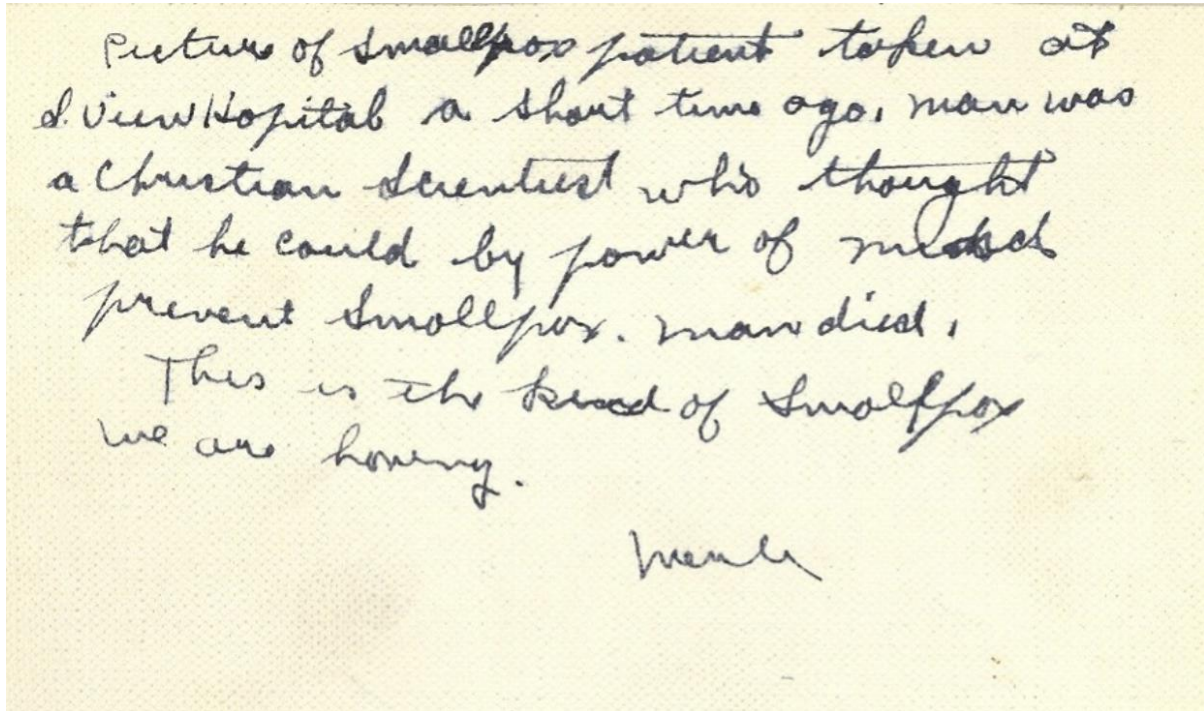 Picture of Smallpox patient taken at
d. View Hopital a short time ago. Man was
a Christian Scientist who thought
that he could by power of mind
prevent Smallpox. Man died.
This is the kind of Smallpox
we are having.